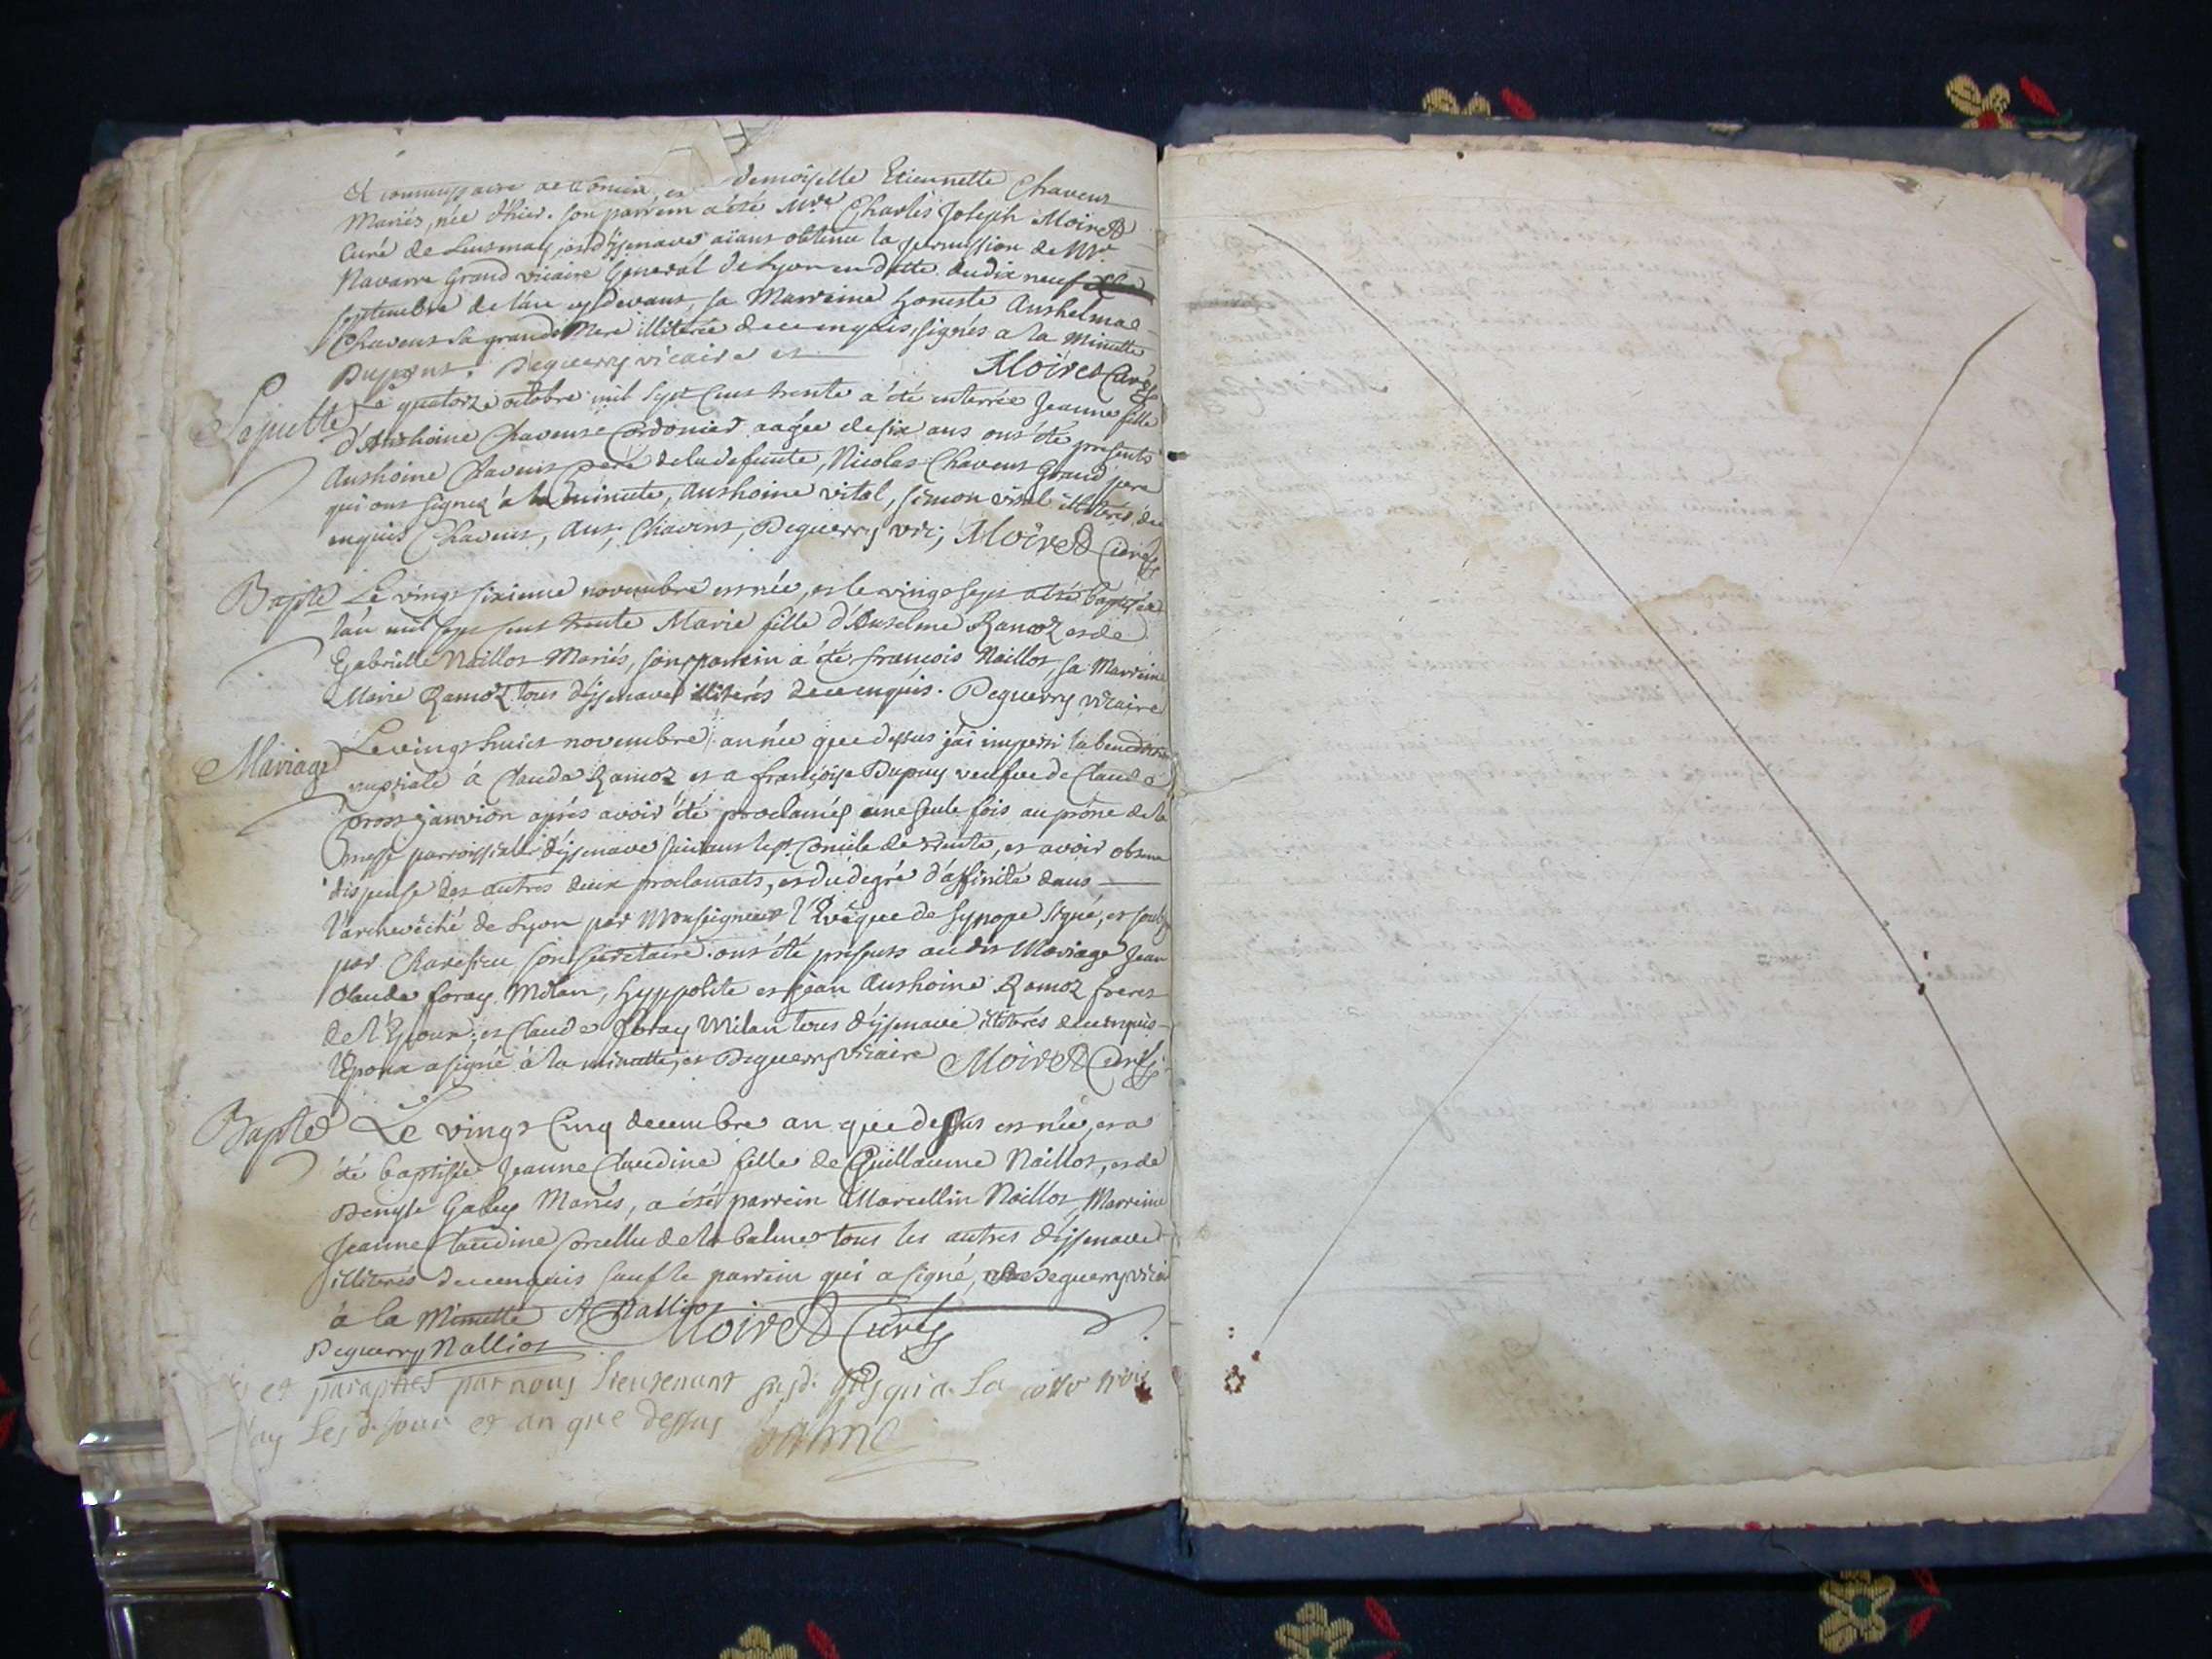 et commissaire demoiselle Etiennette Chavent
Mariés, née d'hier. son parrein a été Mre Charles Joseph Moiret
Curé de et d'ysenave aiant obtenu la permission de Mr
Navarre Grand vicaire General de Lyon en datte du dix neuf
septembre de l'an cy devant, sa Marreine honeste Anthelmae
Chavent sa grande Mere illiterée de ce enquis, signés a la Minutte
Dupont. Deguerry vicaire et Moiret Curé
Sepulte Le quatorze octobre mil sept cent trente a été enterrée Jeanne fille
d'Anthoine Chavent Cordonier aagée de six ans ont été presents
Anthoine Chavent pere de la defunte, Nicolas Chavent Grand pere
qui ont signez à la minute, Anthoine vital, simon vital illiterés de
enquis Chavent, Ant, Chavent, Deguerry vic, Moiret Curé
Bapte Le vingt sixieme novembre est née, et le vingt sept a été baptisée
l'an mil sept cent trente Marie fille d'Anselme Ramoz et de
Gabrielle Naillot Mariés, son parrein a été francois Naillot, sa Marreine
Marie Ramoz tous d'ysenave illiterés de ce enquis. Deguerry vicaire
Mariage Le vingt huict novembre année que dessus j'ai imparti la benediction
nuptiale à Claude Ramoz et a françoise Dupuy veufve de Claude
Gros janvion aprés avoir été proclamés une seule fois au prône de la
messe parroissiale d'ysenave suivant le st. Concile de Trente, et avoir obtenu
dispense des autres deux proclamats, et du degré d'affinité dans
l'archevêché de Lyon par Monseigneur l'Evêque de Synope signé, et
par son secretaire. ont été presents audit Mariage Jean
Claude foray Milan, hyppolite et jean Anthoine Ramoz freres
de l'Epoux; et Claude foray Milan tous d'ysenave illiterés de ce enquis
l'Epoux a signé à la minutte, et Deguerry vicaire Moiret Curé
Bapte Le vingt Cinq decembre an que dessus est née, et a
été baptisée Jeanne Claudine fille de Guillaume Naillot, et de
Denyse Gabey Mariés, a été parrein Marcellin Naillot, Marreine
Jeanne Claudine de la balme tous les autres d'ysenave
illiterés de ce enquis sauf le parrein qui a signé, Deguerry vicaire
à la Minutte Nalliot Moiret Curé
Deguerry Nalliot
et paraphés par nous Lieutenant susd. jusqu'a La cotte trois
Les d. jour et an que dessus